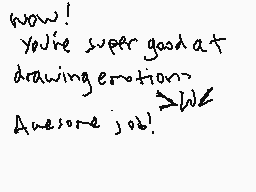 wow!
You're super good at
drawing emotions
>W<
Awesome job!